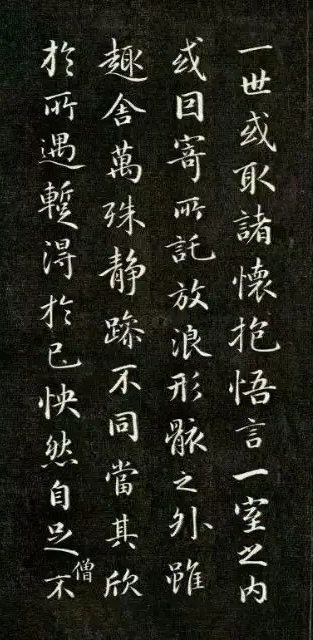 一世或取諸懷抱悟言一室之內
或因寄所託放浪形骸之外雖
趣舍萬殊静躁不同當其欣
於所遇暫得於己怏然自足不
僧